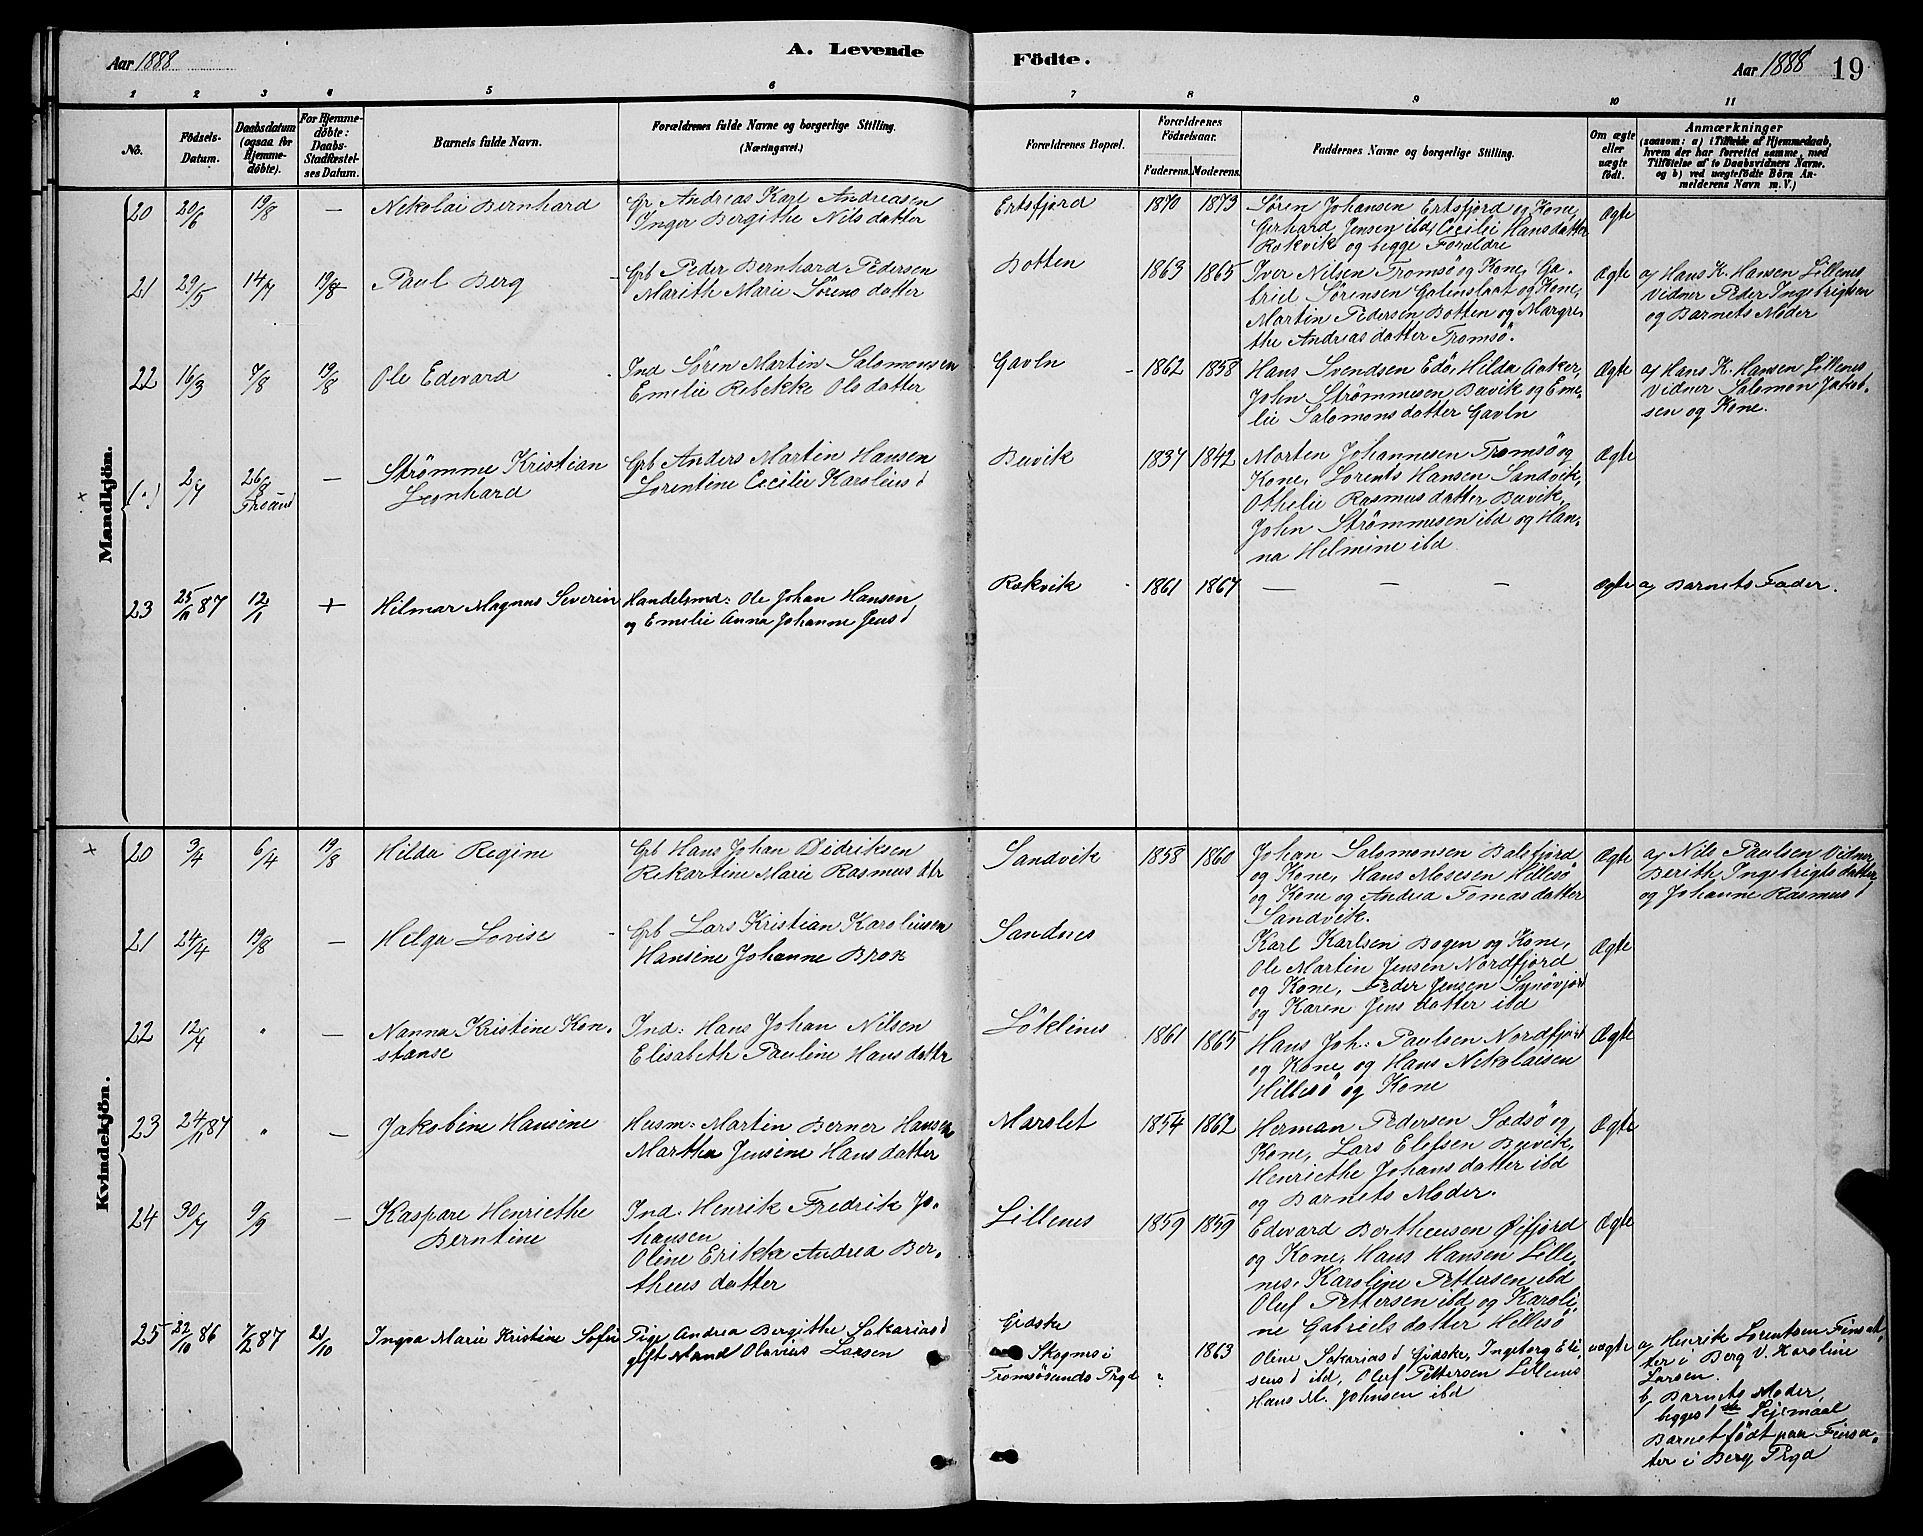 Aar 1888
A. Levende
Födte.
Aar 1888
19
1 2 3 4 5 6 7 8 9 10 11
No.
Födsels-Datum.
Daabsdatum (ogsaa for Hjemme-döbte).
For Hjemme-döbte: Daabs-Stadfæstel-ses Datum.
Barnets fulde Navn.
Forældrenes fulde Navne og borgerlige Stilling. (Næringsvei.)
Forældrenes Bopæl.
Forældrenes Födselsaar.
Faderens. Moderens.
Faddernes Navne og borgerlige Stilling.
Om ægte eller uægte födt.
Anmærkninger
(saasom: a) i Tilfælde af Hjemmedaab,
hvem der har forrettet samme, med
Tilföielse af to Daabsvidners Navne.
og b) ved uægtefödte Börn An-
melderens Navn m. V.)
Mandkjön.
20 20/6 19/8 — Nikolai Bernhard
Gr Andreas Karl Andreasen
Inger Bergithe Nils datter
Ertsfjord 1870 1873
Søren Johansen Ertsfjord og Kone,
Gerhard Jensen ibd, Cecilie Hansdatter
Rækvik og begge Forældre
Ægte
21 29/5 14/7 19/8 Paul Berg
Grb Peder Bernhard Pedersen
Marith Marie Sörens datter
Botten 1863 1865
Iver Nilsen Tromsø og Kone, Ga-
briel Sörensen og Kone,
Martin Pedersen Botten og Margre-
the Andreas datter Tromsö.
Ægte
a) Hans K. Hansen Lillenes
Vidner Peder Ingebrigtsen
og Barnets Moder
22 16/3 7/8 19/8 Ole Edevard
Ind Sören Martin Salomonsen
Emilie Rebekke Ols datter
Gavln 1862 1858
Hans Svendsen Edö, Hilda Anker,
John Strömmesen Buvik og Eme-
lie Salomons datter Gavln
Ægte
a) Hans K. Hansen Lillenes
Vidner Salomon Jakob-
sen og Kone.
× (.) 2/7 26/8 — Strömme Kristian
Leonhard
Grb Anders Martin Hansen
Lorentine Cecilie Karolius d
Buvik 1837 1842
Morten Johannesen Tromsö og
Kone, Lorents Hansen Sandvik,
Othelie Rasmus datter Buvik,
John Strömmesen ibd og Han-
na Helmine ibd
Ægte
23 87 12/1 + Hilmar Magnus Severin
Handelsmd: Ole Johan Hansen
og Emilie Anna Johanne Jens d
Rækvik 1861 1867 — — —
Ægte
a) Barnets Fader.
Kvindekjön.
× 20 3/4 6/4 19/8 Hilda Regine
Grb Hans Johan Didriksen
Rikartine Marie Rasmus dtr
Sandvik 1858 1860
Johan Salomonsen Balsfjord
og Kone, Hans Mosesen Hillesö
og Kone og Andrea Tomas datter
Sandvik.
Ægte
a) Nils Paulsen Vidner
Berith Ingebrigts datter
og Johanne Rasmus d
21 24/4 19/8 — Helga Lovise
Grb Lars Kristian Karoliusen
Hansine Johanne Brox
Sandnes
Karl Karlsen Bogen og Kone,
Ole Martin Jensen Nordfjord
og Kone, Peder Jensen
og Karen Jens datter ibd
Ægte
22 12/7 " — Nanna Kristine Kon-
stanse
Ind: Hans Johan Nilsen
Elisabeth Pauline Hans dattr
Löklines 1861 1865
Hans Joh: Paulsen Nordfjord
og Kone, og Hans Nikolaisen
Hillesö og Kone
Ægte
23 24/11 87 " — Jakobine Hansine
Husm: Martin Berner Hansen
Martha Jensine Hans datter
Marslet 1854 1862
Herman Pedersen Sedsö og
Kone, Lars Elefsen Buvik,
Henriethe Johans datter ibd
og Barnets Moder.
Ægte
24 30/7 9/9 — Kaspare Henriethe
Berntine
Ind: Henrik Fredrik Jo-
hansen
Oline Erikka Andrea Ber-
theus datter
Lillenes 1859 1859
Edevard Bertheusen Öifjord
og Kone, Hans Hansen Lille-
nes, Karoline Pettersen ibd
Oluf Pettersen ibd og Karoli-
ne Gabriels datter Hillesö
Ægte
25 22/10 86 7/2 87 21/10 Ingva Marie Kristine Sofie
Pige Andrea Bergithe Sakarias d
gift Mand Olavius Larsen
Gidske
Skogms i
Tromsösunds Prgd
" 1863
Oline Sakarias d Gidske, Ingeborg Eli-
seus d ibd, Oluf Pettersen Lillenes
Hans M. Johnsen ibd
uægte
a) Henrik Lorentsen Finsæt-
ter i Berg V. Karoline
Larsen.
b) Barnets Moder,
begges 1ste Leiermaal
Barnet födt paa Finsæ-
ter i Berg Prgd